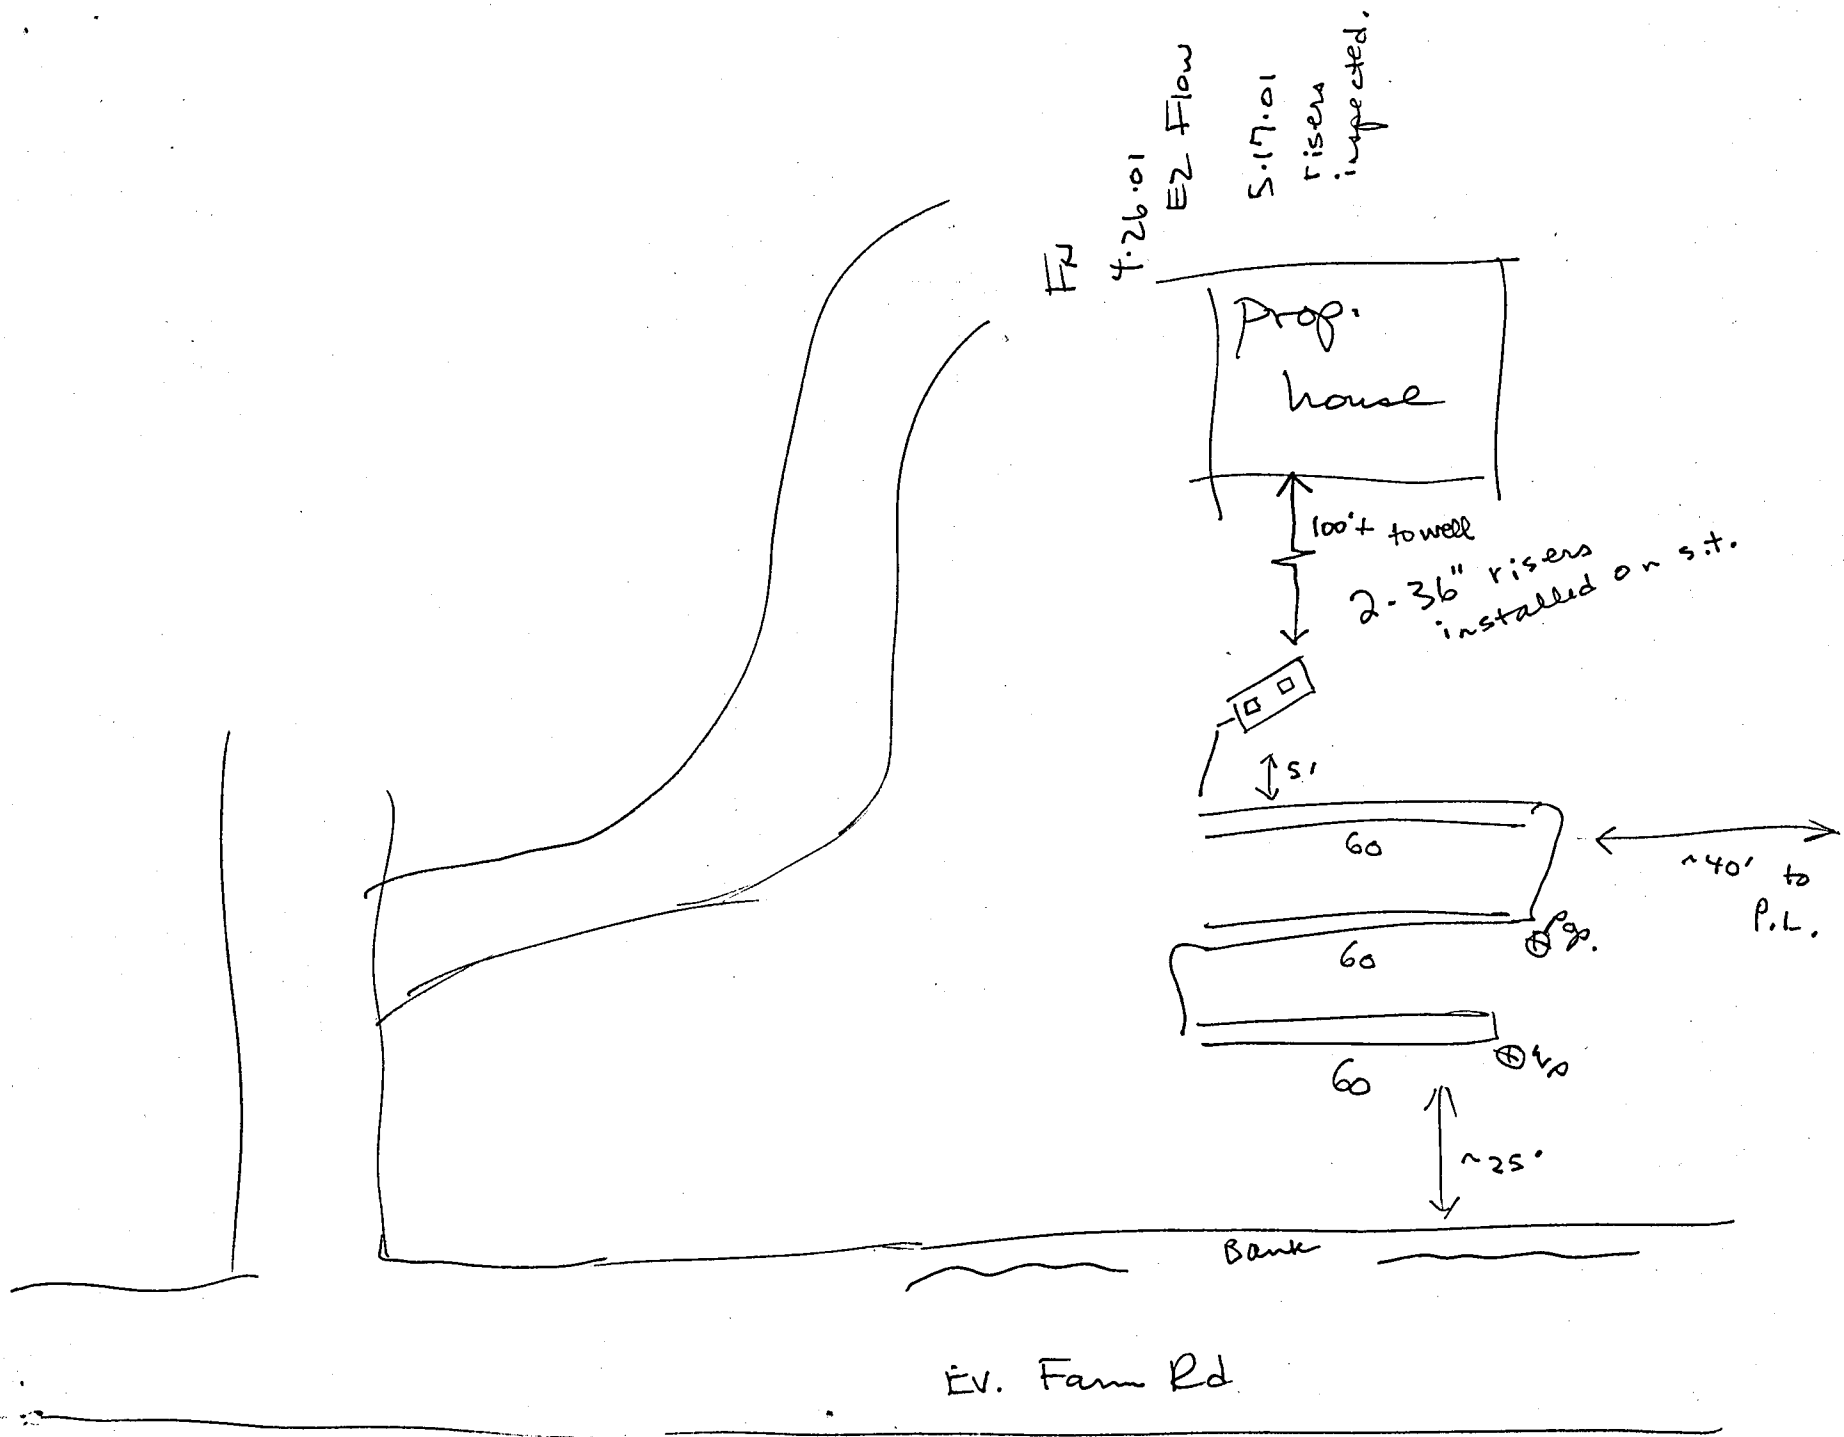 FN
4.26.01
EZ Flow
5.17.01
risers
inspected.
Prop.
house
100'+ to well
2-36" risers
installed on s.t.
5'
60
~40' to
P.L.
60
60
~25'
Bank
Ev. Farm Rd